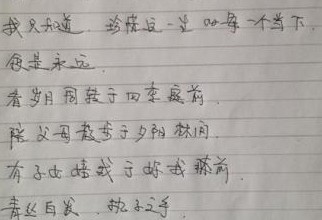 我只知道，珍惜这一生的每一个当下，
便是永远。
看岁月周转于四季庭前，
陪父母散步于夕阳林间，
有子女嬉戏于你我膝前，
青丝白发，执子之手，